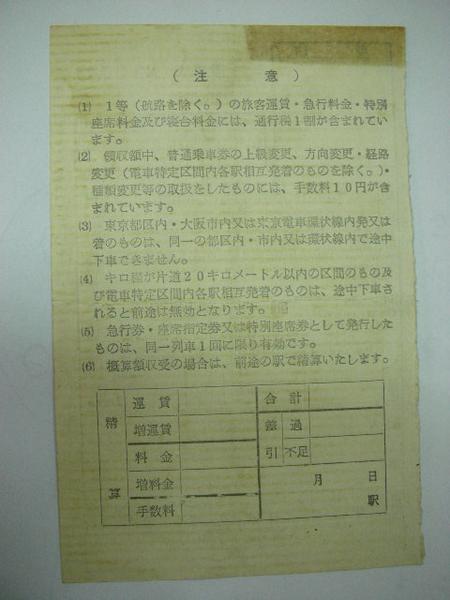 （注　　意）
(1) 1等（航路を除く。）の旅客運賃・急行料金・特別
座席料金及び寝台料金には、通行税1割が含まれてい
ます。
(2) 領収額中、普通乗車券の上級変更、方向変更・経路
変更（電車特定区間内各駅相互発着のものを除く。）・
種類変更等の取扱をしたものには、手数料10円が含
まれています。
(3) 東京都区内・大阪市内又は東京電車環状線内発又は
着のものは、同一の都区内・市内又は環状線内で途中
下車できません。
(4) キロ程が片道20キロメートル以内の区間のもの及
び電車特定区間内各駅相互発着のものは、途中下車さ
れると前途は無効となります。
(5) 急行券・座席指定券又は特別座席券として発行した
ものは、同一列車1回に限り有効です。
(6) 概算額収受の場合は、前途の駅で精算いたします。
精算
運賃
増運賃
料金
増料金
手数料
合計
差引
過
不足
月　日
駅